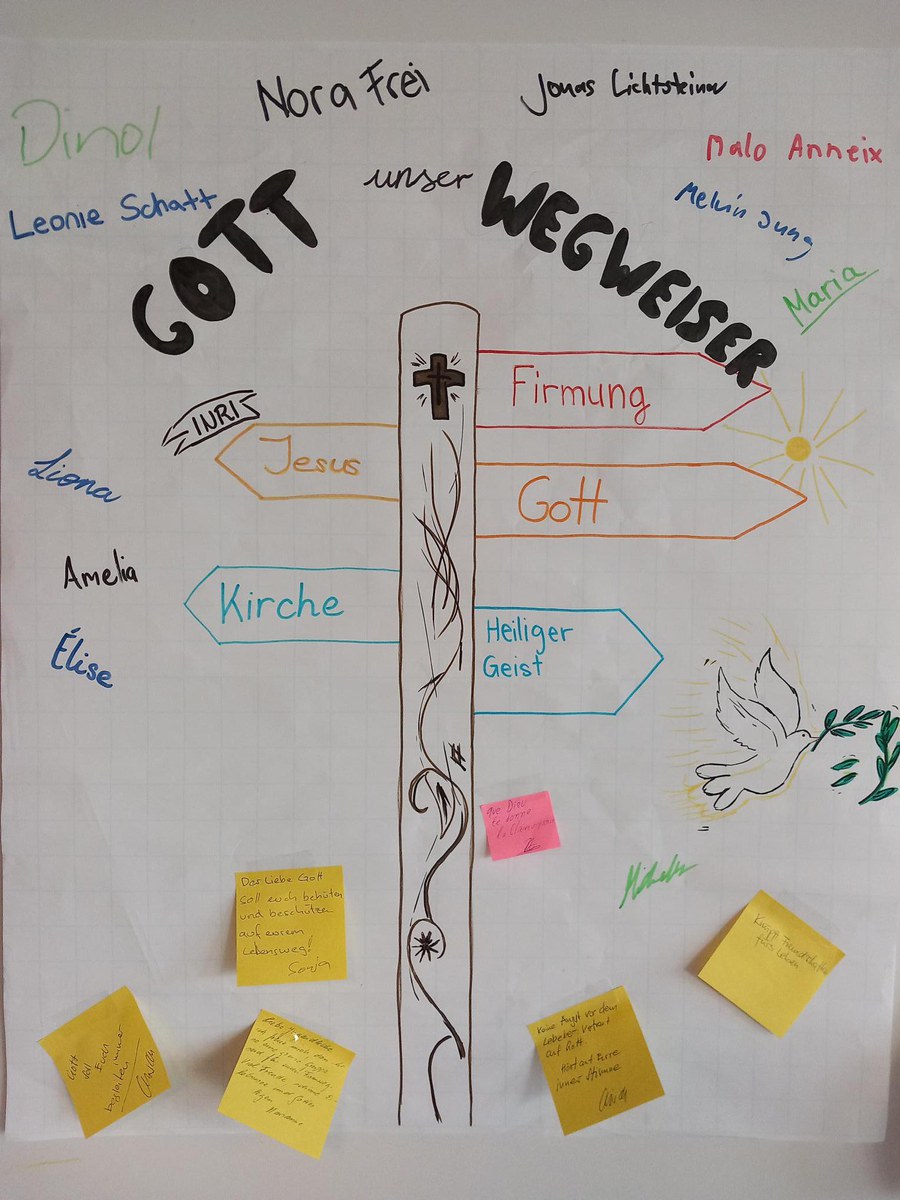 Nora Frei
Jonas Lichtsteiner
Dinol
Malo Anneix
Leonie Schatt
Melvin Jung
Maria
GOTT unser WEGWEISER
Firmung
INRI
Jesus
Gott
Liona
Amelia
Kirche
Heiliger
Geist
Élise
que Dieu
te donne
Der Liebe Gott
soll euch behüten
und beschützen
auf eurem
Lebensweg!
Sonja
Knüpft Freundschaften
fürs Leben
Keine Angst vor dem
Leben Vertraut
auf Gott
Hört auf Eure
innere Stimme
Gott
will
Euch
begleiten immer